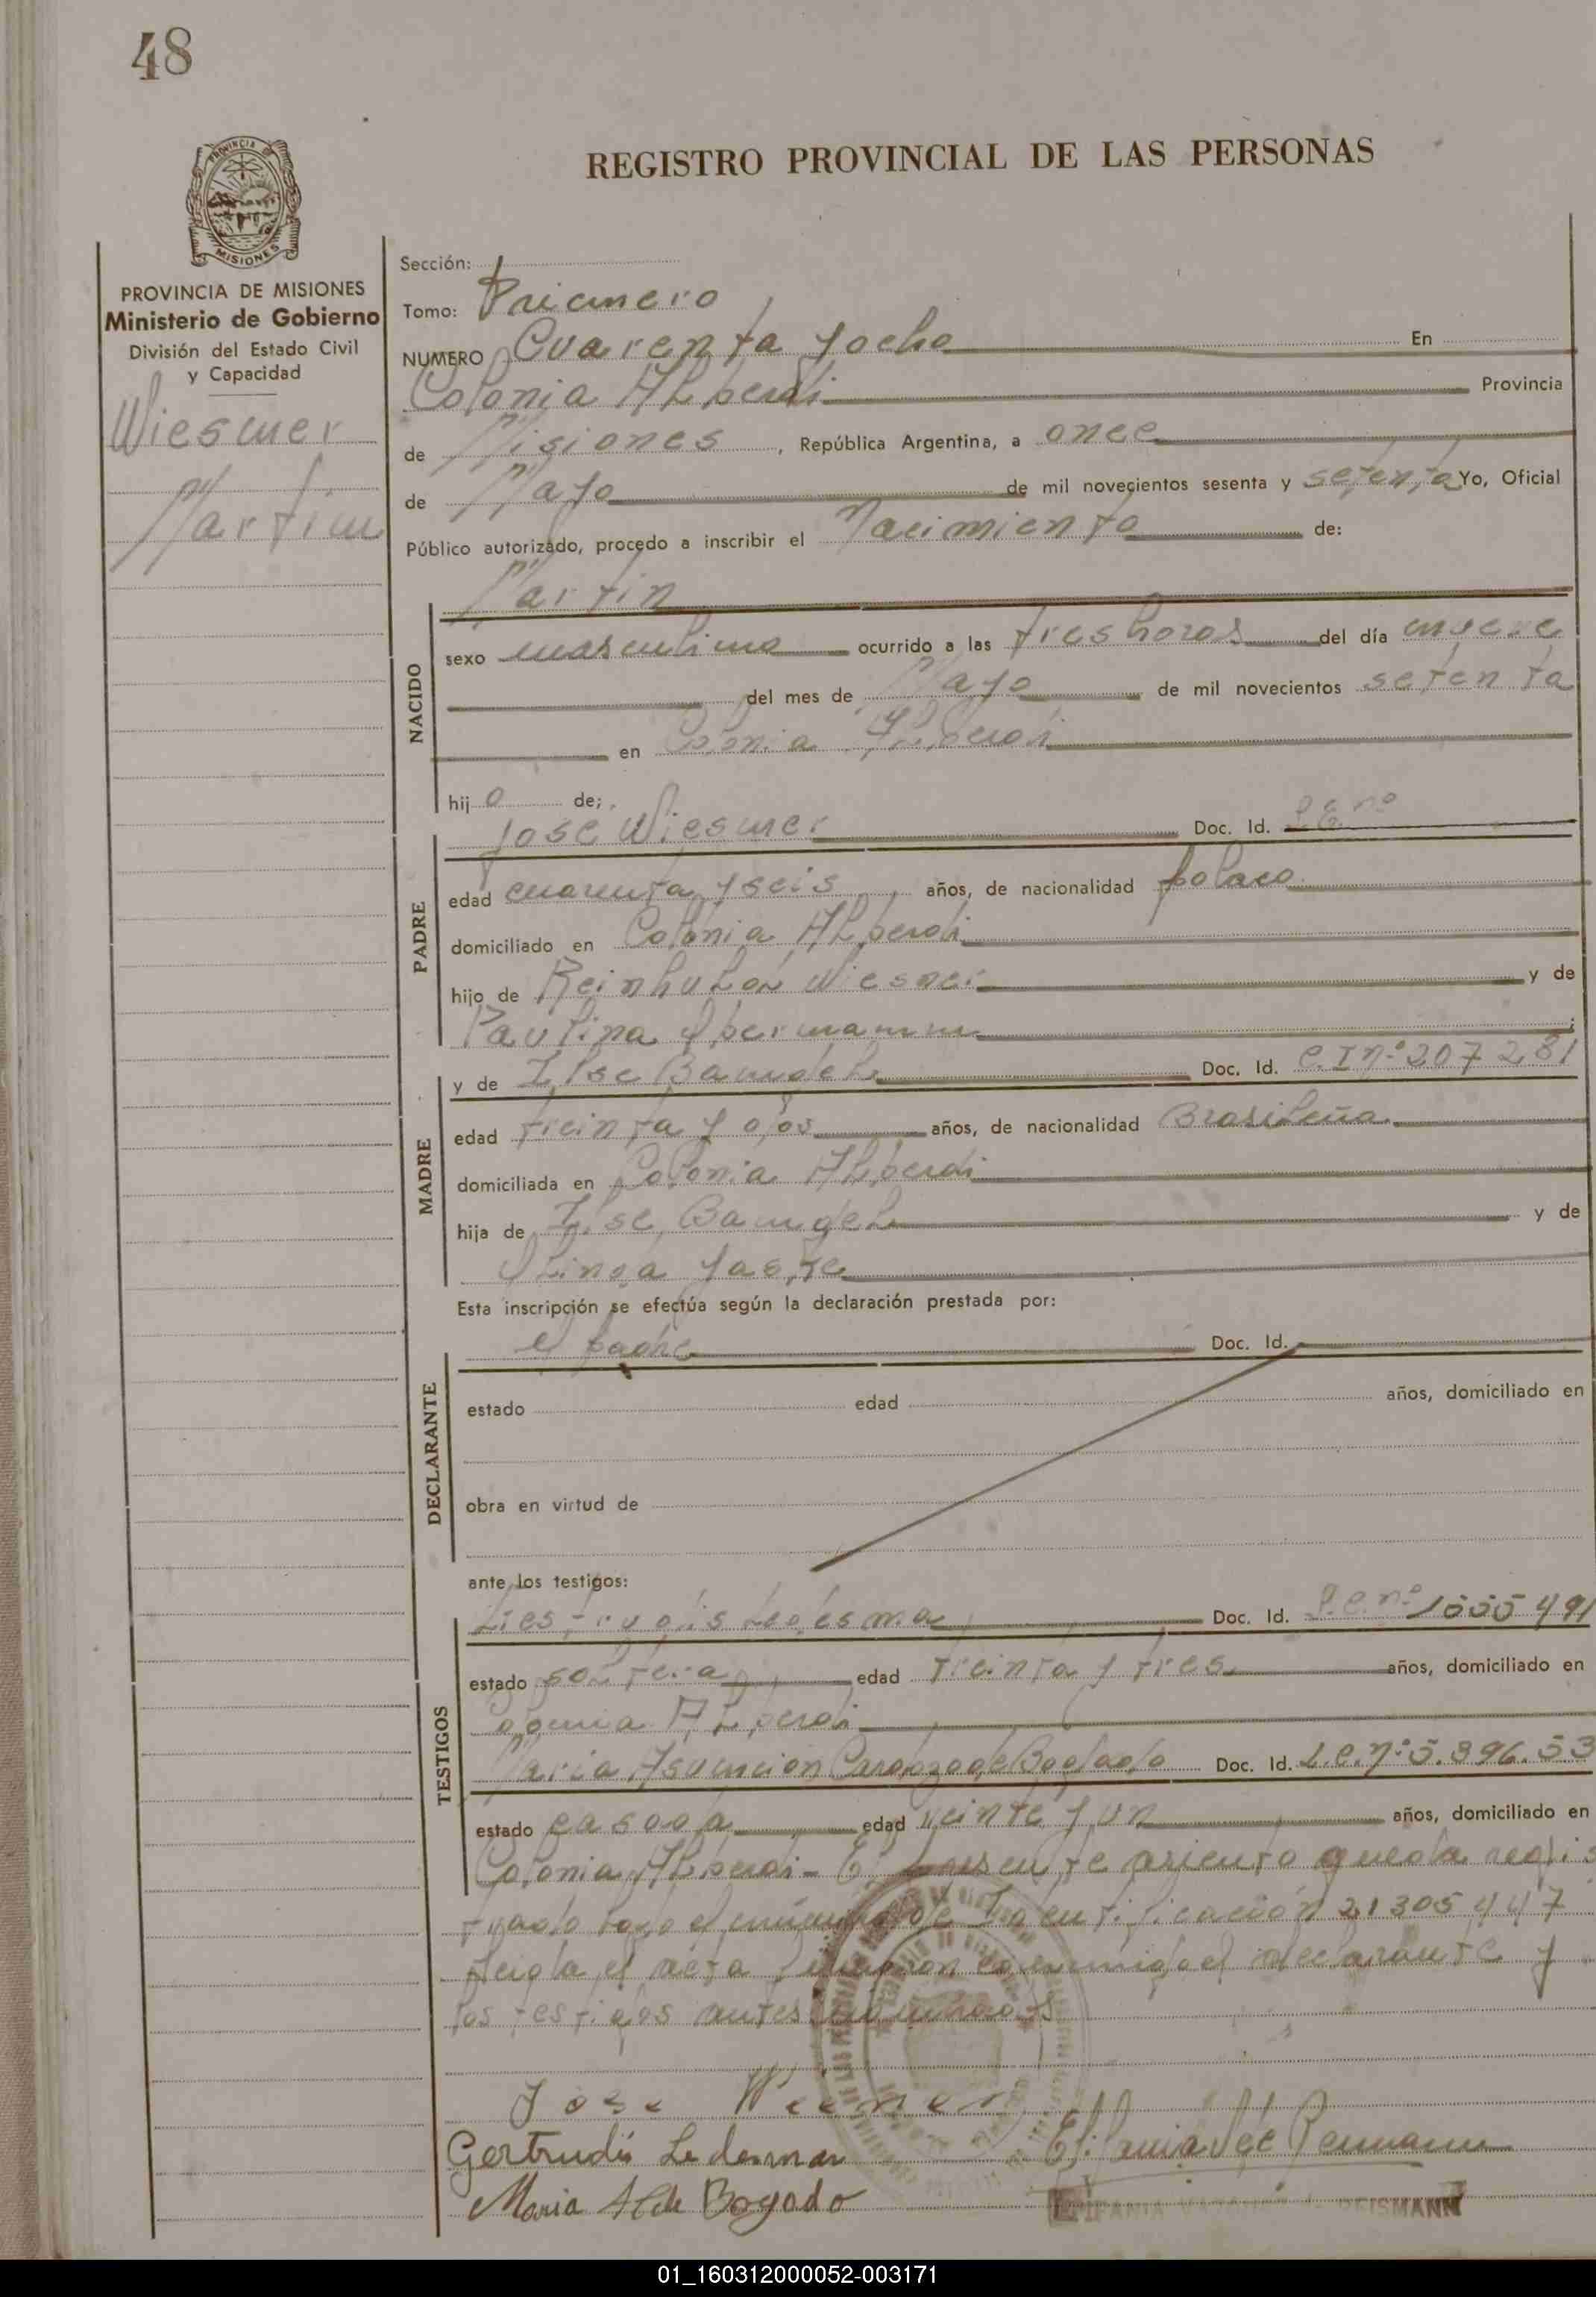 48
PROVINCIA DE
MISIONES
REGISTRO PROVINCIAL DE LAS PERSONAS
PROVINCIA DE MISIONES
Ministerio de Gobierno
División del Estado Civil
y Capacidad
Wiesner
Martin
Sección:
Tomo: Primero
NUMERO Cuarenta y ocho En
Colonia Alberdi Provincia
de Misiones, República Argentina, a once
de Mayo de mil novecientos sesenta y setenta Yo, Oficial
Público autorizado, procedo a inscribir el Nacimiento de:
NACIDO
Martin
sexo masculino ocurrido a las tres horas del día nueve
del mes de Mayo de mil novecientos setenta
en Colonia Alberdi
hijo de;
PADRE
Jose Wiesner Doc. Id. L.E. nº
edad cuarenta y seis años, de nacionalidad polaco
domiciliado en Colonia Alberdi
hijo de Wiesner y de
Paulina
MADRE
y de Ilse Doc. Id. C.I nº 207 281
edad treinta y dos años, de nacionalidad Brasileña
domiciliada en Colonia Alberdi
hija de Ilse y de
Esta inscripción se efectúa según la declaración prestada por:
DECLARANTE
el padre Doc. Id.
estado edad años, domiciliado en
obra en virtud de
ante los testigos:
TESTIGOS
Ledesma Doc. Id.
estado soltera edad treinta y tres años, domiciliado en
Colonia Alberdi
Maria Asuncion de Bogado Doc. Id. L.C. nº 5.396.53
estado casada edad veinte y un años, domiciliado en
Colonia Alberdi - El presente asiento queda regis
trado bajo el número de Identificación 21305447
leida el acta firmaron conmigo el declarante y
los testigos antes nombrados
Jose Wiesner
Gertrudis Ledesma
Maria A C de Bogado
EPIFANIA DE REISMANN
01_160312000052-003171